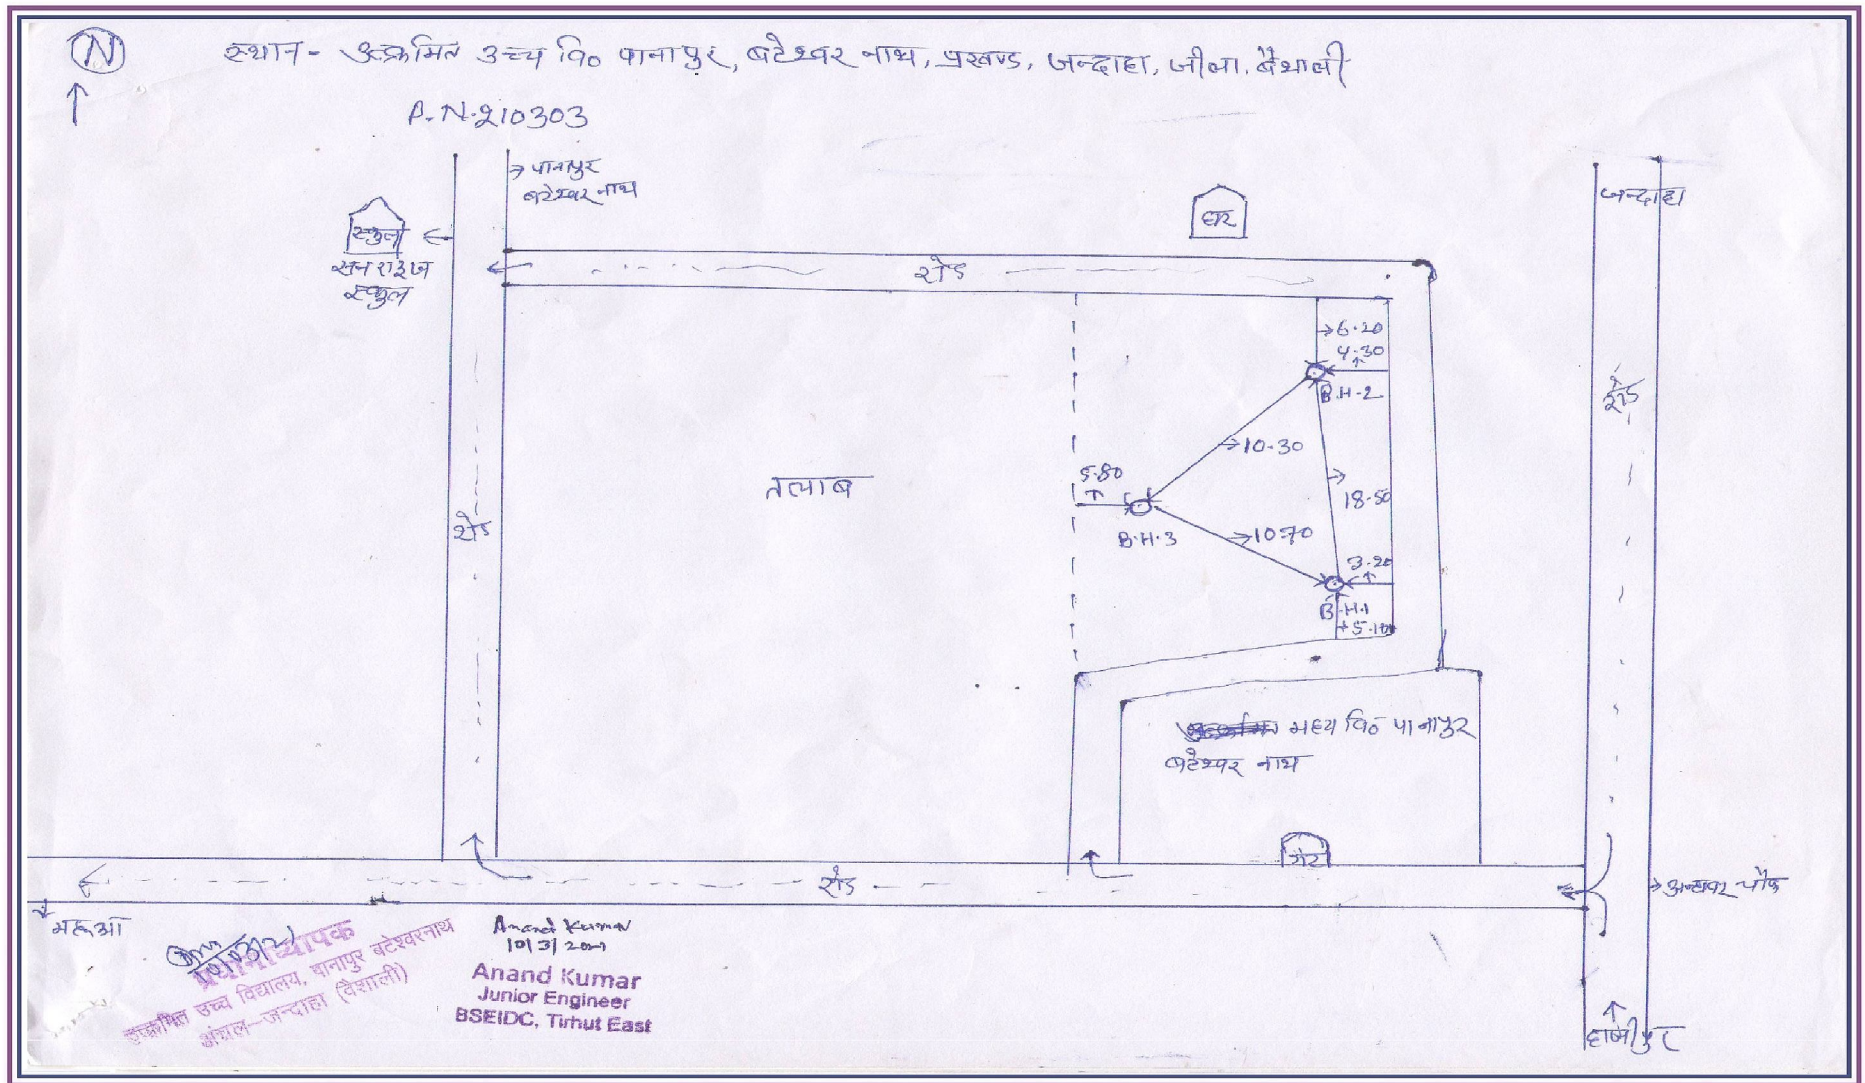 N
स्थान - उत्क्रमित उच्च वि० पानापुर, बटेश्वर नाथ, प्रखण्ड, जन्दाहा, जीला. वैशाली
P.N.210303
पानापुर
बटेश्वर नाथ
स्कुल
सन राइज
स्कुल
घर
जन्दाहा
रोड
6.20
4.30
B.H-2
रोड
10.30
5.80
तलाब
18.50
रोड
B.H.3
10.70
3.20
B.H.1
5.10
मध्य वि० पानापुर
बटेश्वर नाथ
गेट
रोड
चौक
महुआ
प्रधानाध्यापक
उत्क्रमित उच्च विद्यालय, पानापुर बटेश्वरनाथ
अंचल-जन्दाहा (वैशाली)
Anand Kumar
10/3/2021
Anand Kumar
Junior Engineer
BSEIDC, Tirhut East
हाजीपुर